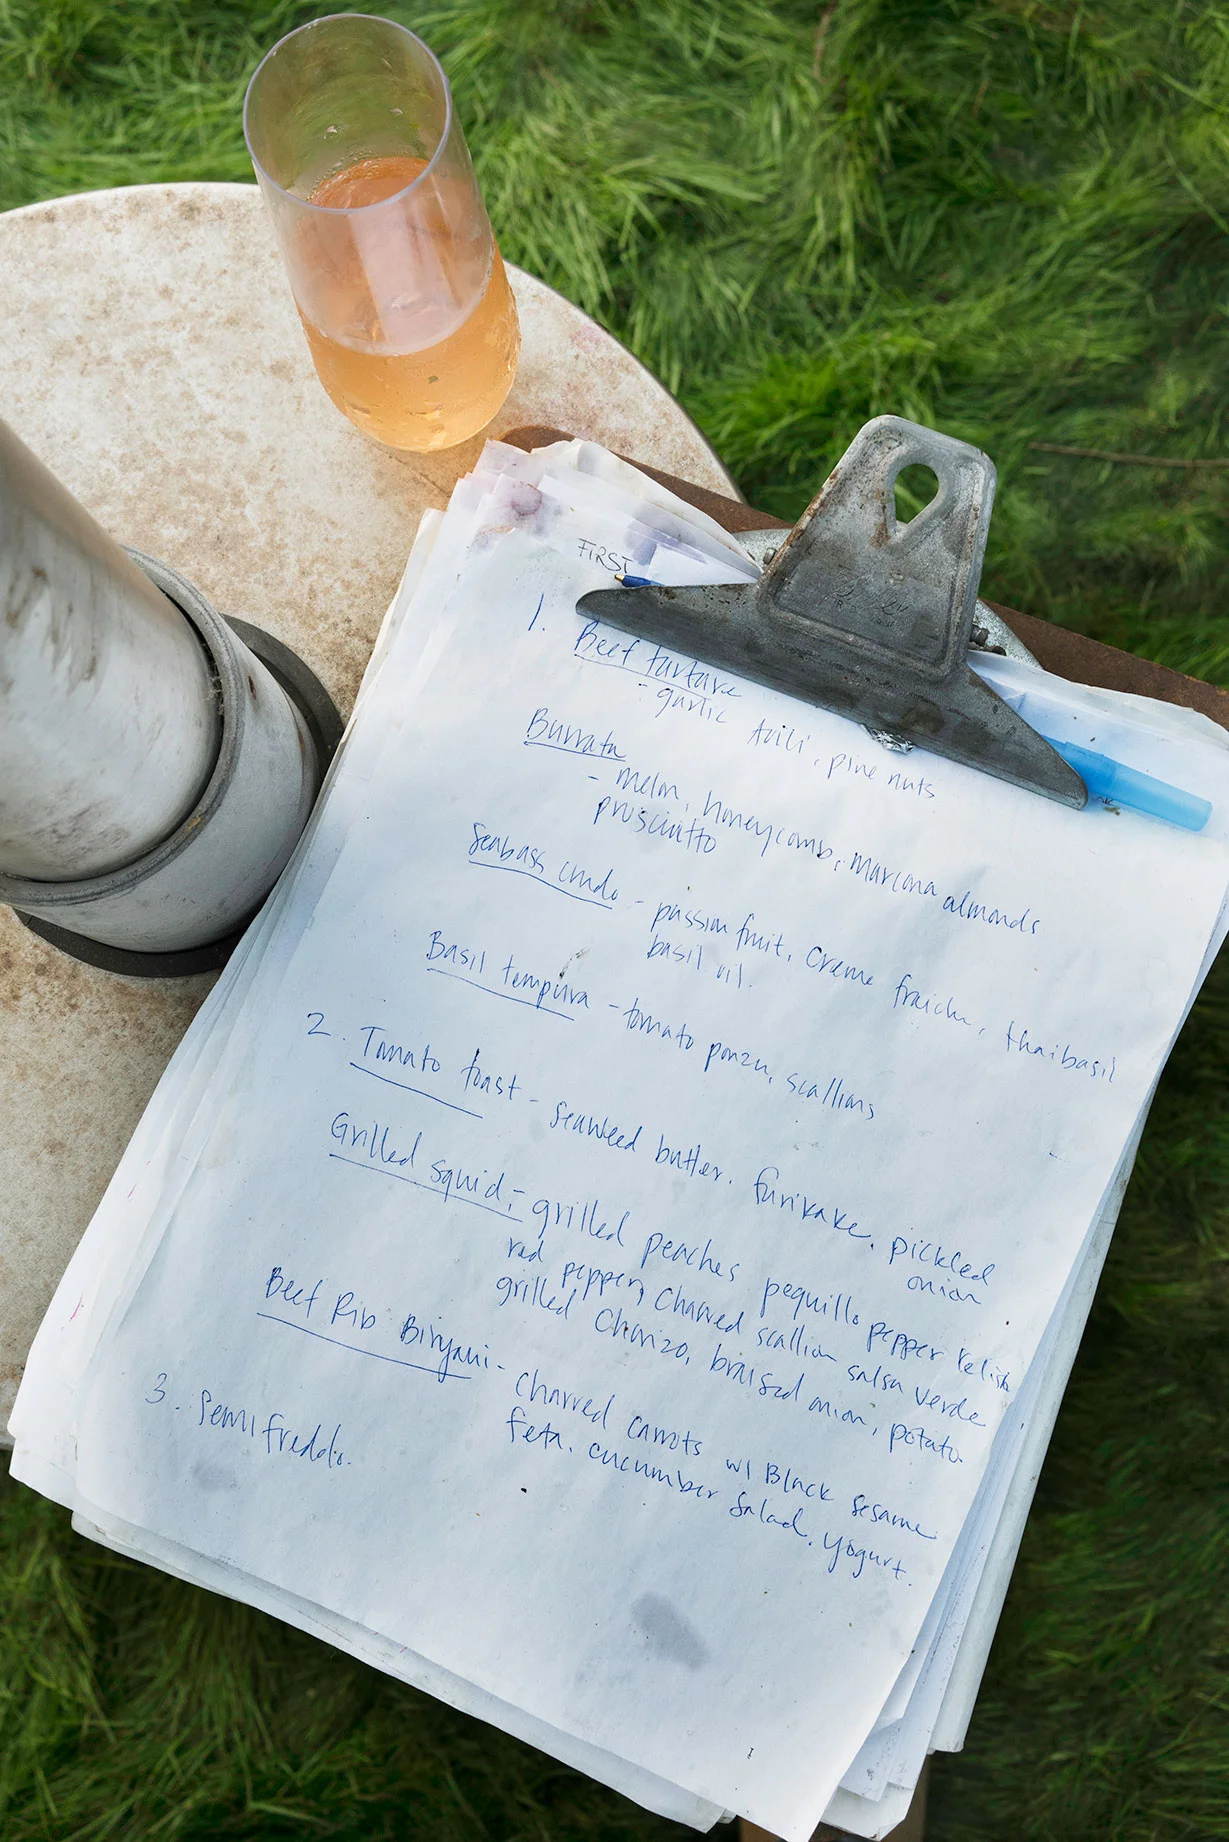 FIRST
1. Beef tartare
- garlic aoili, pine nuts
Burrata
- melon, honeycomb, marcona almonds
prosciutto
Seabass crudo - passion fruit, creme fraiche, thai basil
basil oil.
Basil tempura - tomato ponzu, scallions
2. Tomato toast - seaweed butter, furikake, pickled
onion
Grilled squid - grilled peaches pequillo pepper relish
red pepper, charred scallion salsa verde
grilled chorizo, braised onion, potato.
Beef Rib Biryani - charred carrots w/ Black sesame
feta, cucumber salad, yogurt.
3. Semifreddo.